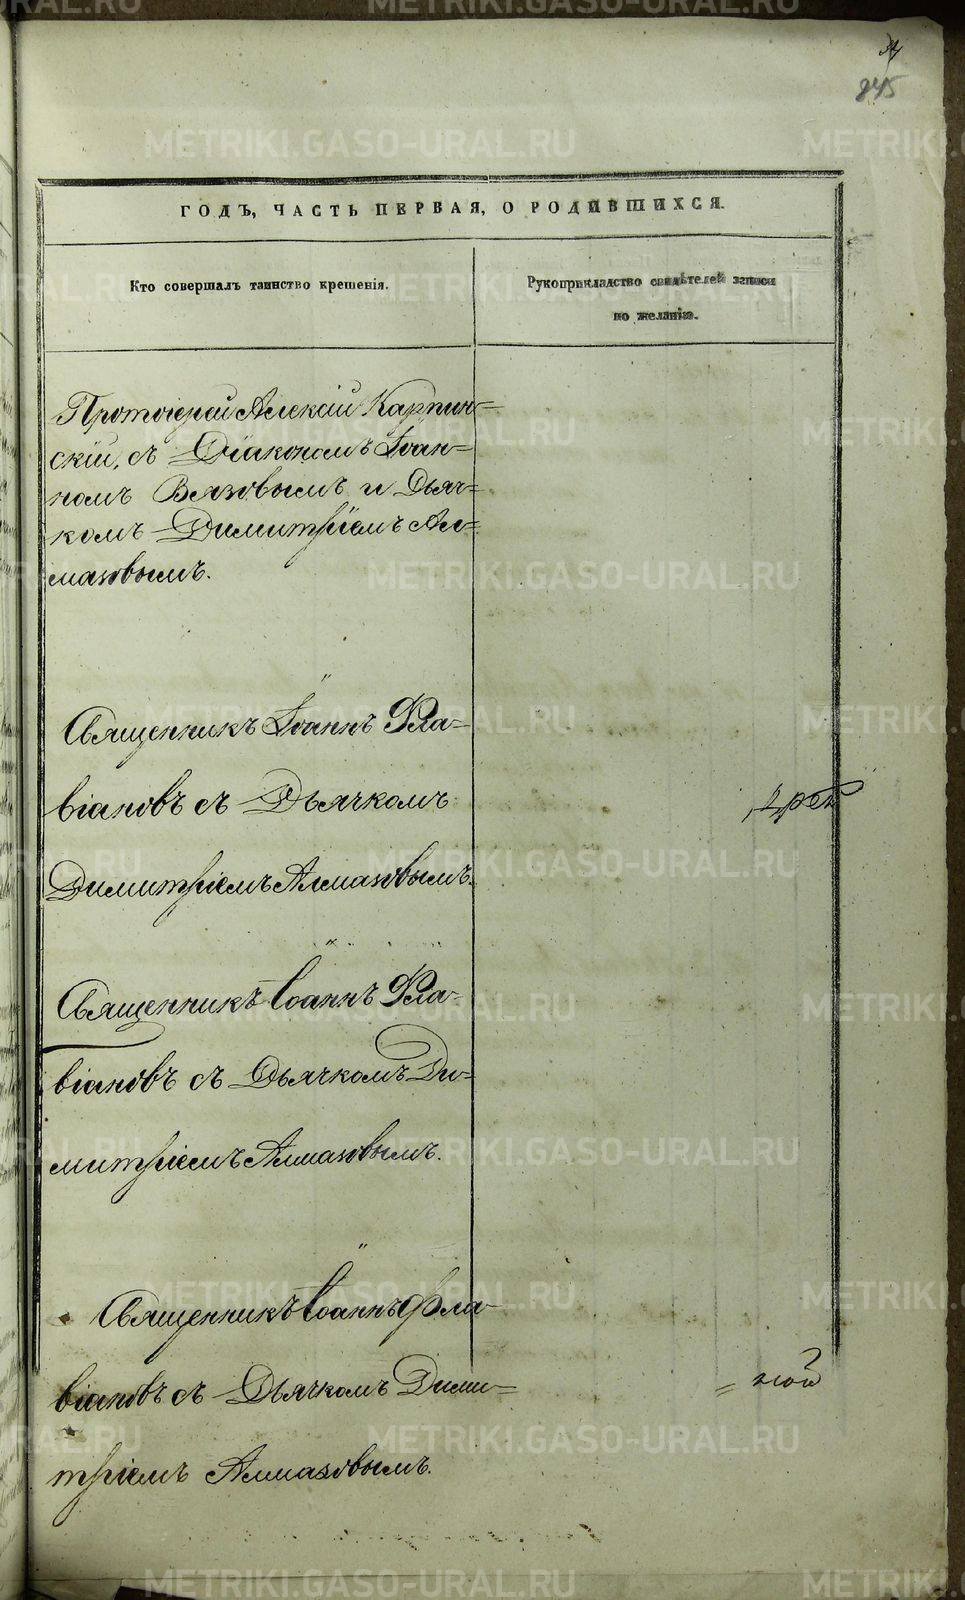 845
ГОДЪ, ЧАСТЬ ПЕРВАЯ, О РОДИВШИХСЯ.
Кто совершалъ таинство крещенія.
Рукоприкладство свидѣтелей записи
по желанію.
Протоіерей Алексій Карпин=
скій, съ Діакономъ Іоан=
номъ Вязовымъ и Дьяч=
комъ Димитріемъ Ал=
мазовымъ.
Священникъ Іоаннъ Фла=
віановъ съ Дьячкомъ
Димитріемъ Алмазовымъ.
Священникъ Іоаннъ Фла=
віановъ съ Дьячкомъ Ди=
митріемъ Алмазовымъ.
Священникъ Іоаннъ Фла=
віановъ съ Дьячкомъ Дими=
= ной
тріемъ Алмазовымъ.
METRIKI.GASO-URAL.RU